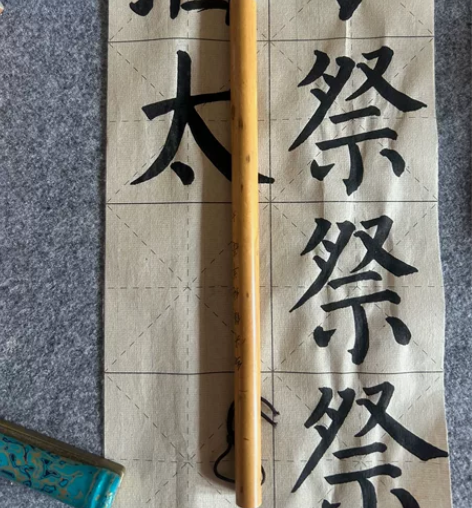 祭
祭
祭
太